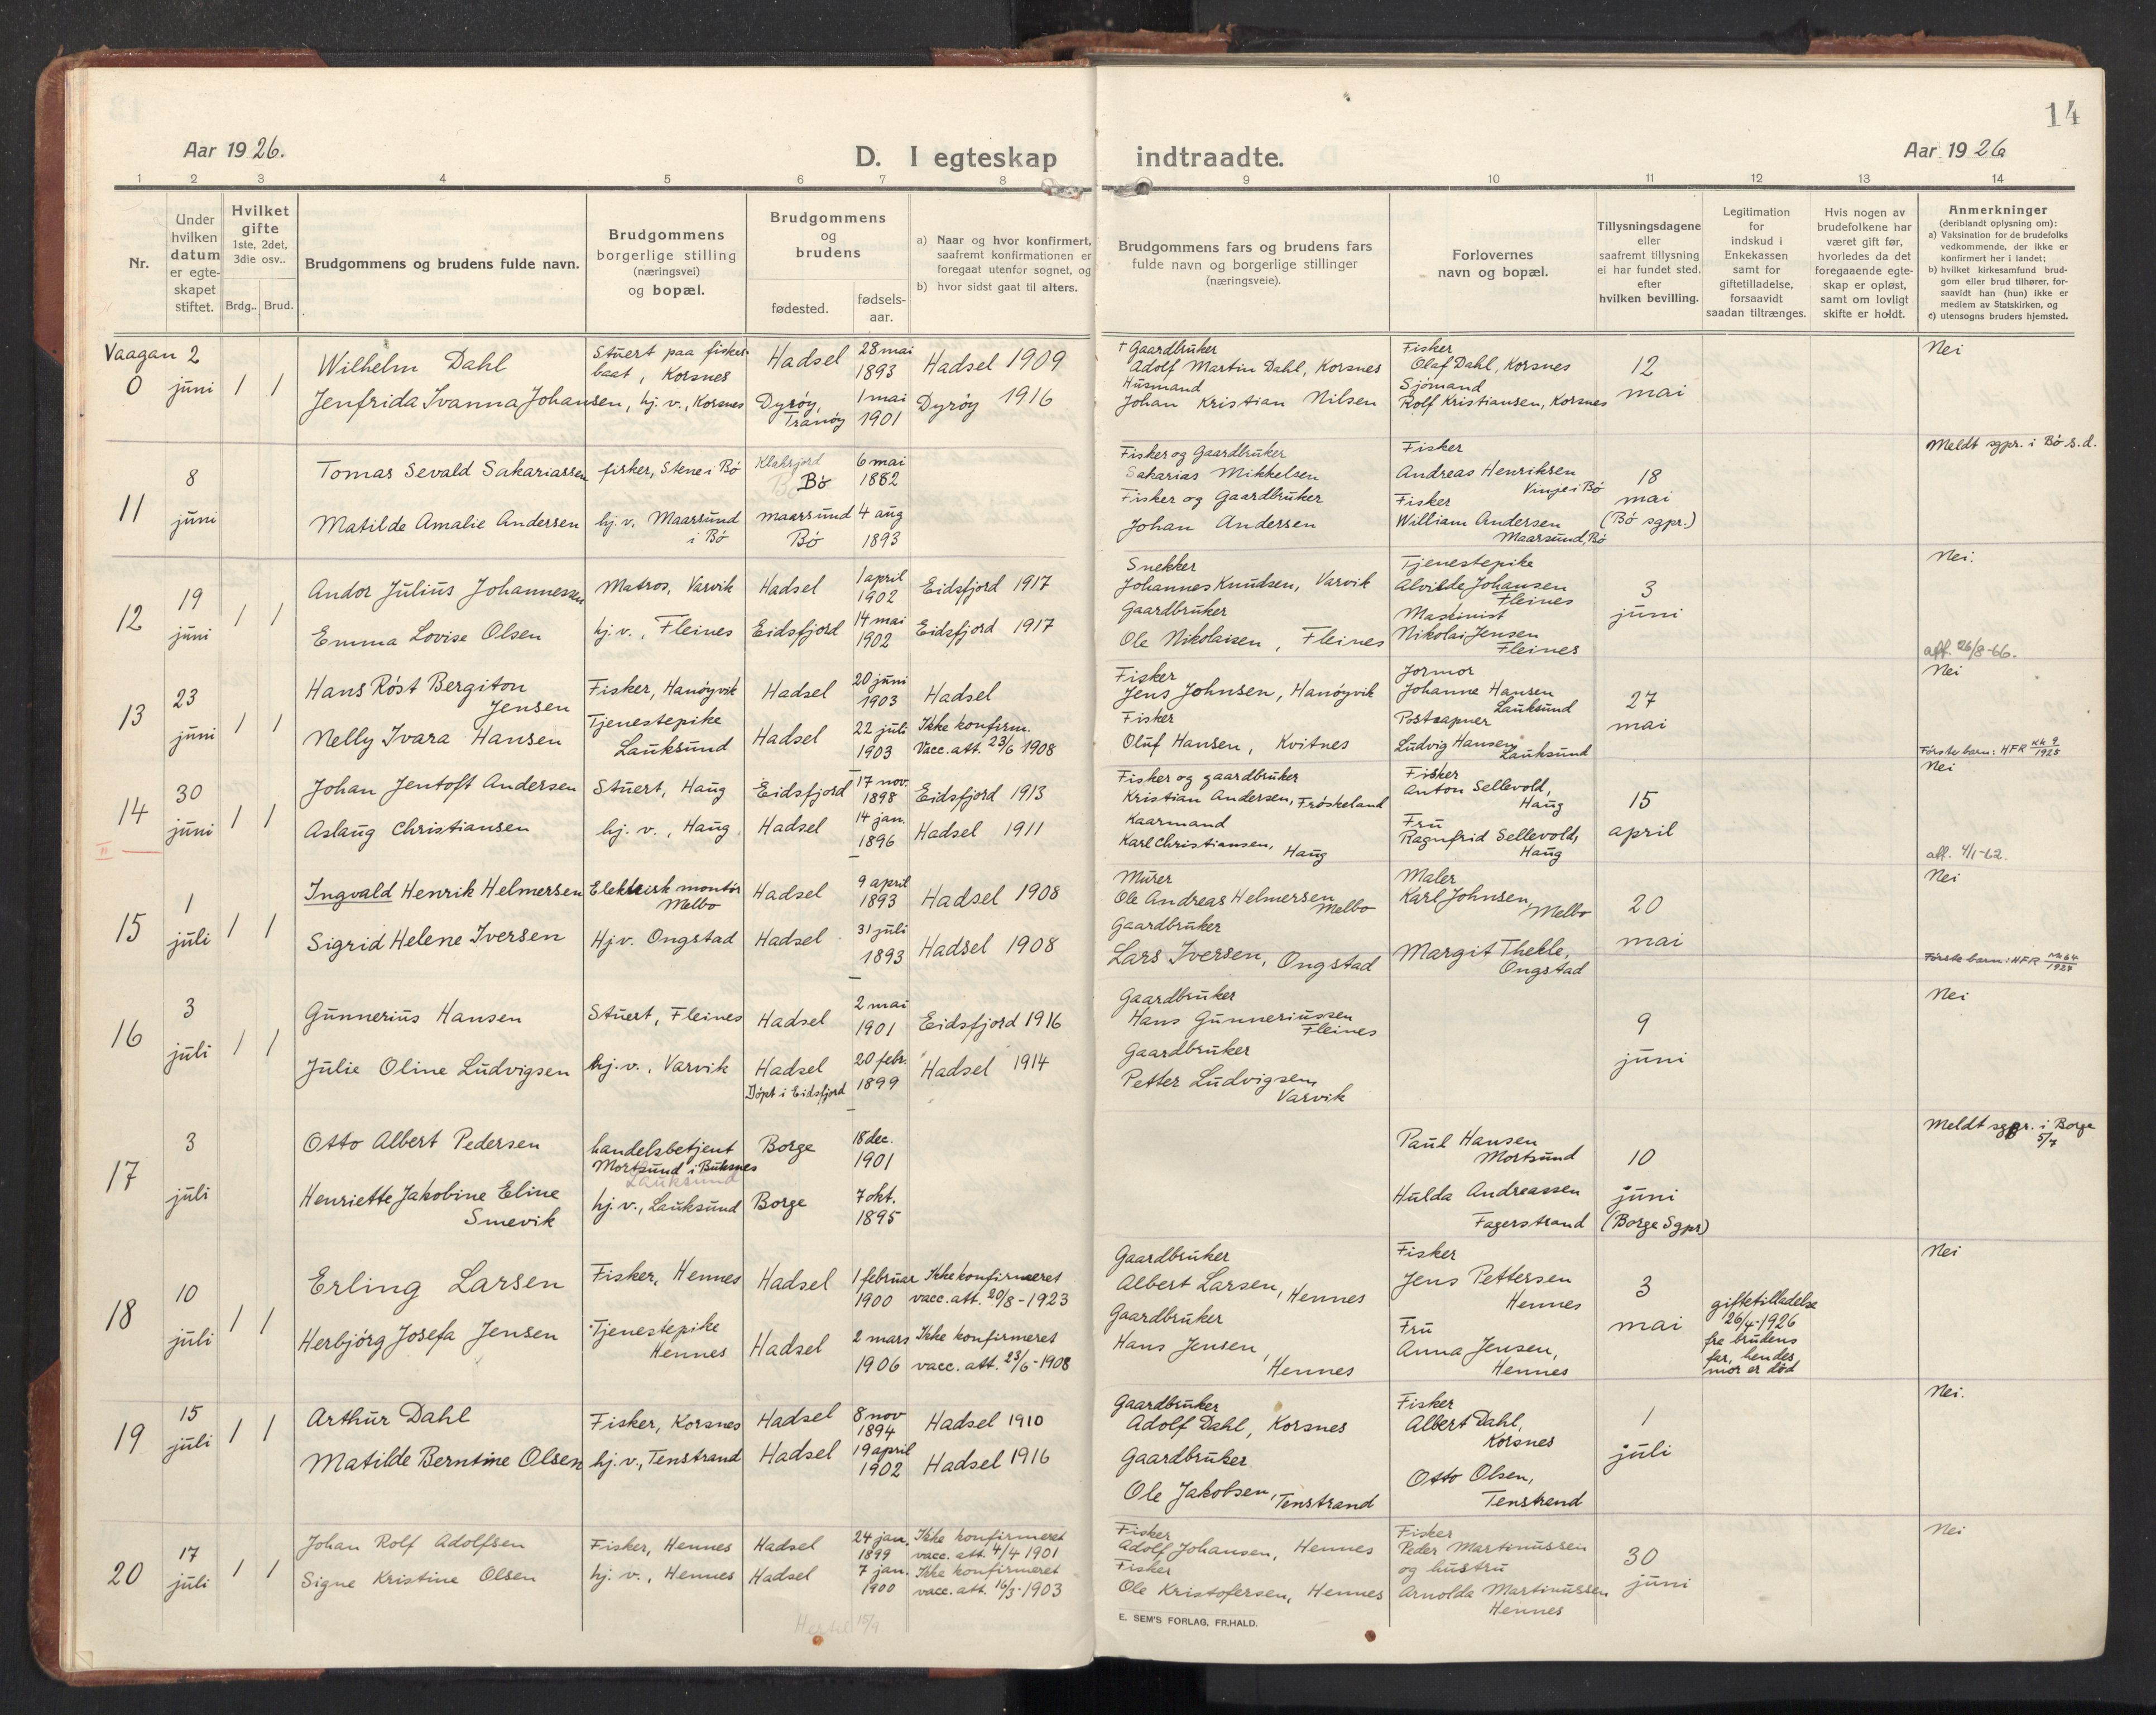 14
Aar 1926.
D. I egteskap indtraadte.
Aar 1926
1 2 3 4 5 6 7 8 9 10 11 12 13 14
Nr.
Under
hvilken
datum
er egte-
skapet
stiftet.
Hvilket
gifte
1ste, 2det,
3die osv..
Brdg.. Brud.
Brudgommens og brudens fulde navn.
Brudgommens
borgerlige stilling
(næringsvei)
og bopæl.
Brudgommens
og
brudens
fødested.
fødsels-
aar.
a) Naar og hvor konfirmert,
saafremt konfirmationen er
foregaat utenfor sognet, og
b) hvor sidst gaat til alters.
Brudgommens fars og brudens fars
fulde navn og borgerlige stillinger
(næringsveie).
Forlovernes
navn og bopæl.
Tillysningsdagene
eller
saafremt tillysning
ei har fundet sted.
efter
hvilken bevilling.
Legitimation
for
indskud i
Enkekassen
samt for
giftetilladelse,
forsaavidt
saadan tiltrænges.
Hvis nogen av
brudefolkene har
været gift før,
hvorledes da det
foregaaende egte-
skap er opløst,
samt om lovligt
skifte er holdt.
Anmerkninger
(deriblandt oplysning om):
a) Vaksination for de brudefolks
vedkommende, der ikke er
konfirmert her i landet;
b) hvilket kirkesamfund brud-
gom eller brud tilhører, for-
saavidt han (hun) ikke er
medlem av Statskirken, og
c) utensogns bruders hjemsted.
Vaagan
0
2
juni
1 1
Wilhelm Dahl
Stuert paa fisker-
baat, Korsnes
Hadsel
28 mai
1893
Hadsel 1909
† Gaardbruker
Adolf Martin Dahl, Korsnes
Fisker
Olaf Dahl, Korsnes
12
mai
Nei
Jenfrida Ivanna Johansen, hj. v., Korsnes
Dyrøy,
Tranøy
1 mai
1901
Dyrøy 1916
Husmand
Johan Kristian Nilsen
Sjømand
Rolf Kristiansen, Korsnes
11
8
juni
Tomas Sevald Sakariassen
fisker, Stene i Bø
Klaksjord
Bø
6 mai
1882
Fisker og Gaardbruker
Sakarias Mikkelsen
Fisker
Andreas Henriksen
Vinje i Bø
18
mai
(Bø sgpr.)
Meldt sgpr. i Bø s.d.
Matilde Amalie Andersen
hj. v. Maarsund
i Bø
Maarsund
Bø
4 aug
1893
Fisker og Gaardbruker
Johan Andersen
Fisker
William Andersen
Maarsund, Bø
12
19
juni
1 1
Andor Julius Johannessen
Matros, Varvik
Hadsel
1 april
1902
Eidsfjord 1917
Snekker
Johannes Knudsen, Varvik
Tjenestepike
Alvilde Johansen
Fleines
3
juni
Nei.
Emma Lovise Olsen
hj. v., Fleines
Eidsfjord
14 mai
1902
Eidsfjord 1917
Gaardbruker
Ole Nikolaisen, Fleines
Maskinist
Nikolai Jensen
Fleines
att. 26/8-66.
13
23
juni
1 1
Hans Røst Bergiton
Jensen
Fisker, Hanøyvik
Hadsel
20 juni
1903
Hadsel
Fisker
Jens Johnsen, Hanøyvik
Jormor
Johanne Hansen
Lauksund
27
mai
Nei
Nelly Ivara Hansen
Tjenestepike
Lauksund
Hadsel
22 juli
1903
Ikke konfirm.
Vacc. att. 23/6 1908
Fisker
Oluf Hansen, Kvitnes
Postaapner
Ludvig Hansen
Lauksund
Første barn: HFR kk 9/1925
14
30
juni
1 1
Johan Jentoft Andersen
Stuert, Haug
Eidsfjord
17 nov.
1898
Eidsfjord 1913
Fisker og gaardbruker
Kristian Andersen, Frøskeland
Fisker
Anton Sellevold,
Haug
15
april
Nei
Aslaug Christiansen
hj. v., Haug
Hadsel
14 jan.
1896
Hadsel 1911
Kaarmand
Karl Christiansen, Haug
Fru
Ragnfrid Sellevold,
Haug
att. 4/1-62.
15
1
juli
1 1
Ingvald Henrik Helmersen
Elektrisk montør
Melbo
Hadsel
9 april
1893
Hadsel 1908
Murer
Ole Andreas Helmersen
Melbo
Maler
Karl Johnsen,
Melbo
20
mai
Nei
Sigrid Helene Iversen
Hj v. Ongstad
Hadsel
31 juli
1893
Hadsel 1908
Gaardbruker
Lars Iversen, Ongstad
Margit Thekle,
Ongstad
Første barn: HFR nk 64/1927
16
3
juli
1 1
Gunnerius Hansen
Stuert, Fleines
Hadsel
2 mai
1901
Eidsfjord 1916
Gaardbruker
Hans Gunneriussen
Fleines
9
juni
Nei
Julie Oline Ludvigsen
hj. v., Varvik
Hadsel
Døpt i Eidsfjord
20 febr.
1899
Hadsel 1914
Gaardbruker
Petter Ludvigsen,
Varvik
17
3
juli
Otto Albert Pedersen
handelsbetjent
Mortsund i Buksnes
Lauksund
Borge
18 dec.
1901
Paul Hansen
Mortsund
10
juni
(Borge Sgpr)
Meldt sgpr. i Borge
5/7
Henriette Jakobine Eline
Smevik
hj. v., Lauksund
Borge
7 okt.
1895
Hulda Andreassen
Fagerstrand
18
10
juli
1 1
Erling Larsen
Fisker, Hennes
Hadsel
1 februar
1900
Ikke konfirmeret
vacc. att. 20/8-1923
Gaardbruker
Albert Larsen, Hennes
Fisker
Jens Pettersen
Hennes
3
mai
giftetilladelse
26/4-1926
fra brudens
far, hendes
mor er død
Nei
Herbjørg Josefa Jensen
Tjenestepike
Hennes
Hadsel
2 mars
1906
Ikke konfirmeret
vacc. att. 23/6-1908
Gaardbruker
Hans Jensen,
Hennes
Fru
Anna Jensen,
Hennes
19
15
juli
1 1
Arthur Dahl
Fisker, Korsnes
Hadsel
8 nov
1894
Hadsel 1910
Gaardbruker
Adolf Dahl, Korsnes
Fisker
Albert Dahl,
Korsnes
1
juli
Nei.
Matilde Berntine Olsen
hj. v., Tenstrand
Hadsel
19 april
1902
Hadsel 1916
Gaardbruker
Ole Jakobsen, Tenstrand
Otto Olsen,
Tenstrend
20
17
juli
1 1
Johan Rolf Adolfsen
Fisker, Hennes
Hadsel
24 jan.
1899
Ikke konfirmeret
vacc. att. 4/4 1901
Fisker
Adolf Johansen, Hennes
Fisker
Peder Martinussen
og hustru
30
juni
Nei
Signe Kristine Olsen
hj. v., Hennes
Hadsel
7 jan.
1900
Ikke konfirmeret
vacc. att. 16/3-1903
Fisker
Ole Kristofersen, Hennes
Arnolda Martinussen
Hennes
E. SEM'S FORLAG, FR.HALD.